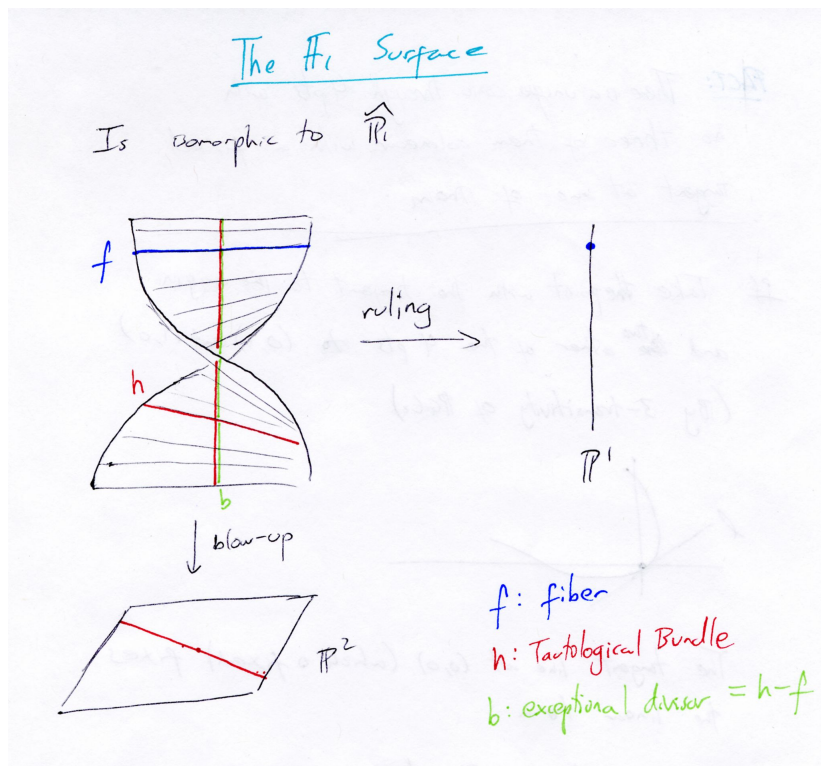 The 𝔽₁ Surface
Is isomorphic to ℙ̂₁
f
ruling
h
ℙ¹
b
blow-up
ℙ²
f: fiber
h: Tautological Bundle
b: exceptional divisor = h-f